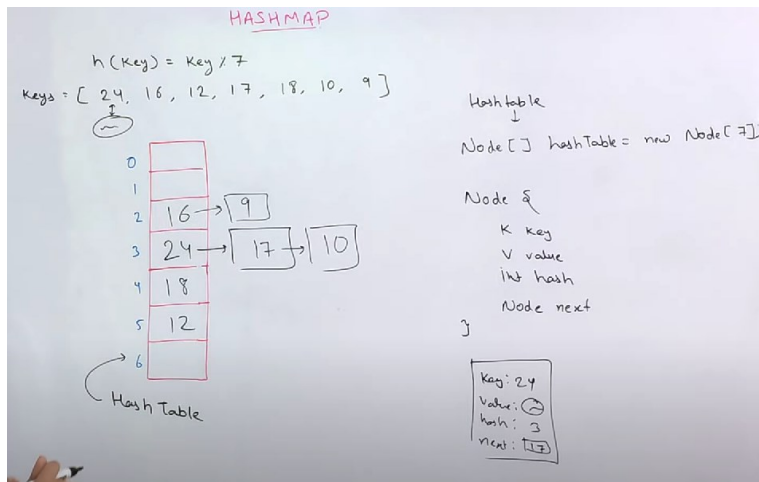 HASHMAP
h(Key) = Key % 7
Keys = [ 24, 16, 12, 17, 18, 10, 9 ]
0
1
2 16 → 9
3 24 → 17 → 10
4 18
5 12
6
Hash Table
Hashtable
↓
Node[] hashTable = new Node[7]
Node {
K key
V value
int hash
Node next
}
Key: 24
Value: ~
hash: 3
next: 17